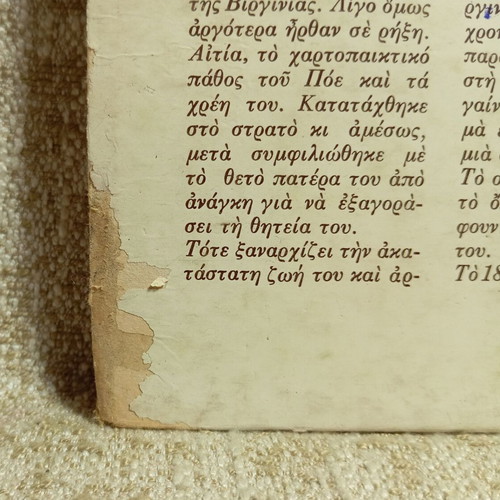 τῆς Βιργινίας. Λίγο ὅμως
ἀργότερα ἦρθαν σὲ ρήξη.
Αἰτία, τὸ χαρτοπαικτικό
πάθος τοῦ Πόε καὶ τά
χρέη του. Κατατάχθηκε
στὸ στρατὸ κι ἀμέσως,
μετά συμφιλιώθηκε μὲ
τὸ θετὸ πατέρα του ἀπὸ
ἀνάγκη γιὰ νὰ ἐξαγορά-
σει τὴ θητεία του.
Τότε ξαναρχίζει τὴν ἀκα-
τάστατη ζωή του καὶ ἀρ-
στὴ
μὰ
μιὰ
Τὸ
τὸ
του.
Τὸ 18